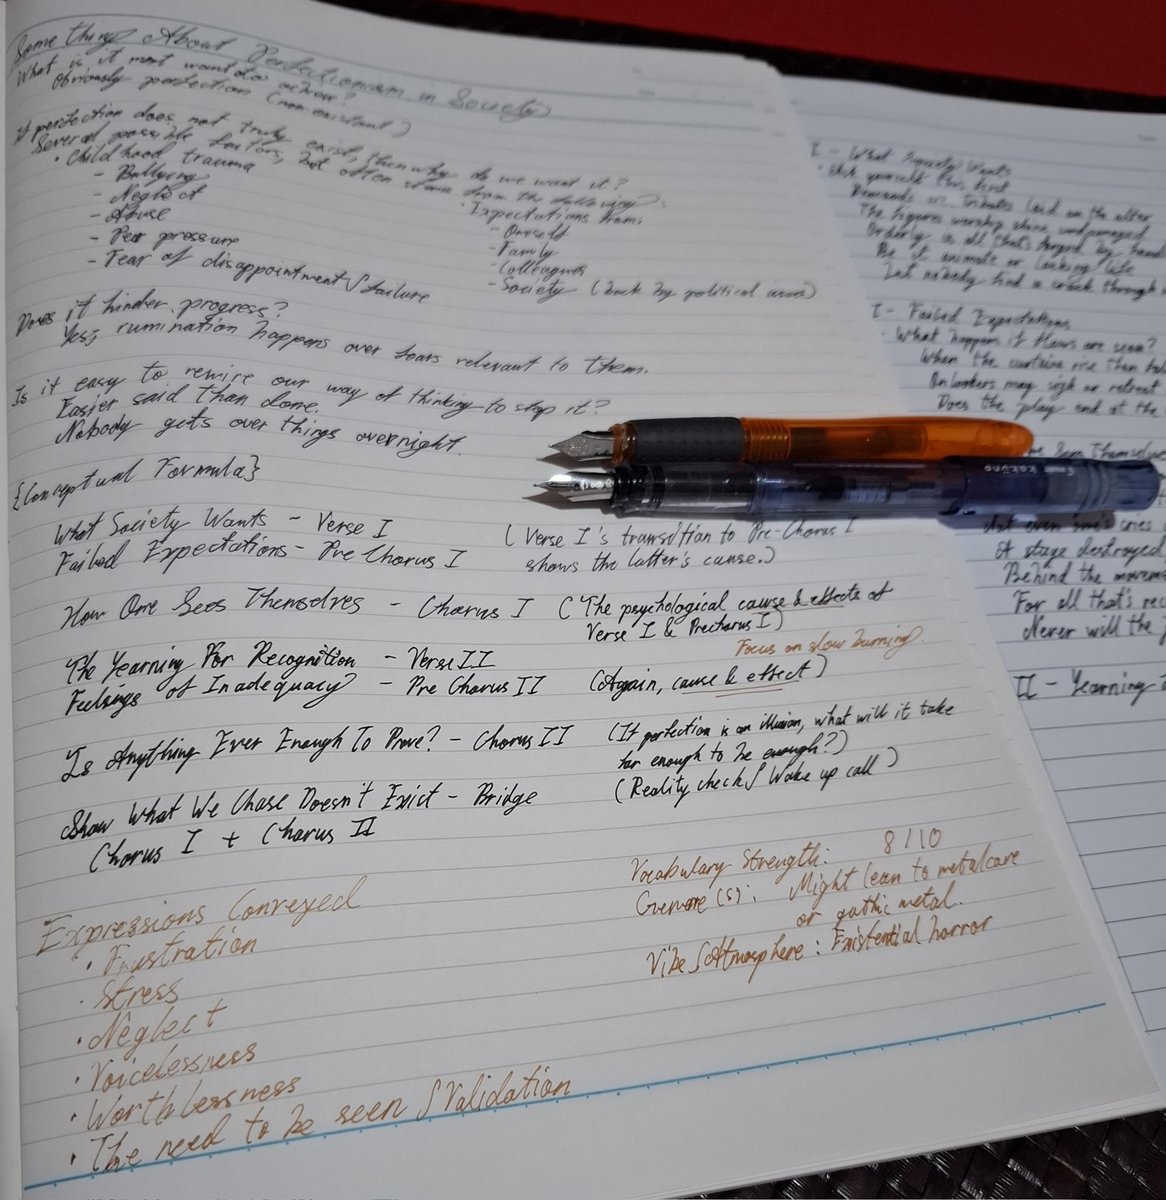 Something About Perfectionism in Society
What is it most want to achieve?
Obviously perfection (non-existant)
If perfection does not truly exist, then why do we want it?
Several possible factors, but often stems from the following:
· Childhood trauma
- Bullying
- Neglect
- Abuse
- Peer pressure
- Fear of disappointment/failure
· Expectations from:
- Oneself
- Family
- Colleagues
- Society (back by political views)
Does it hinder progress?
Yes, rumination happens over fears relevant to them.
Is it easy to rewire our way of thinking to stop it?
Easier said than done.
Nobody gets over things overnight.
{Conceptual Formula}
What Society Wants - Verse I
Failed Expectations - Pre Chorus I
(Verse I's transition to Pre-Chorus I
shows the latter's cause.)
How One Sees Themselves - Chorus I
(The psychological cause & effects of
Verse I & Prechorus I)
Focus on slow burning.
The Yearning For Recognition - Verse II
Feelings of Inadequacy - Pre Chorus II
(Again, cause & effect)
Is Anything Ever Enough To Prove? - Chorus II
(If perfection is an illusion, what will it take
for enough to be enough?)
Show What We Chase Doesn't Exist - Bridge
(Reality check/Wake up call)
Chorus I + Chorus II
Expressions Conveyed
· Frustration
· Stress
· Neglect
· Voicelessness
· Worthlessness
· The need to be seen/Validation
Vocabulary Strength: 8/10
Genre(s): Might lean to metalcore
or gothic metal.
Vibe/Atmosphere: Existential horror
I - What Society Wants
Demands or tributes laid on the alter
The figures worship shine undamaged
Orderly is all that's forged by hand
Be it animate or lacking life
Let nobody find a crack through
I - Failed Expectations
- What happens if flaws are seen?
When the curtains rise then
Onlookers may sigh or retreat
Does the play end at the
Sees Themselves
kakuno
Not even one's cries
A stage destroyed
Behind the
For all that's
Never will the
II - Yearning